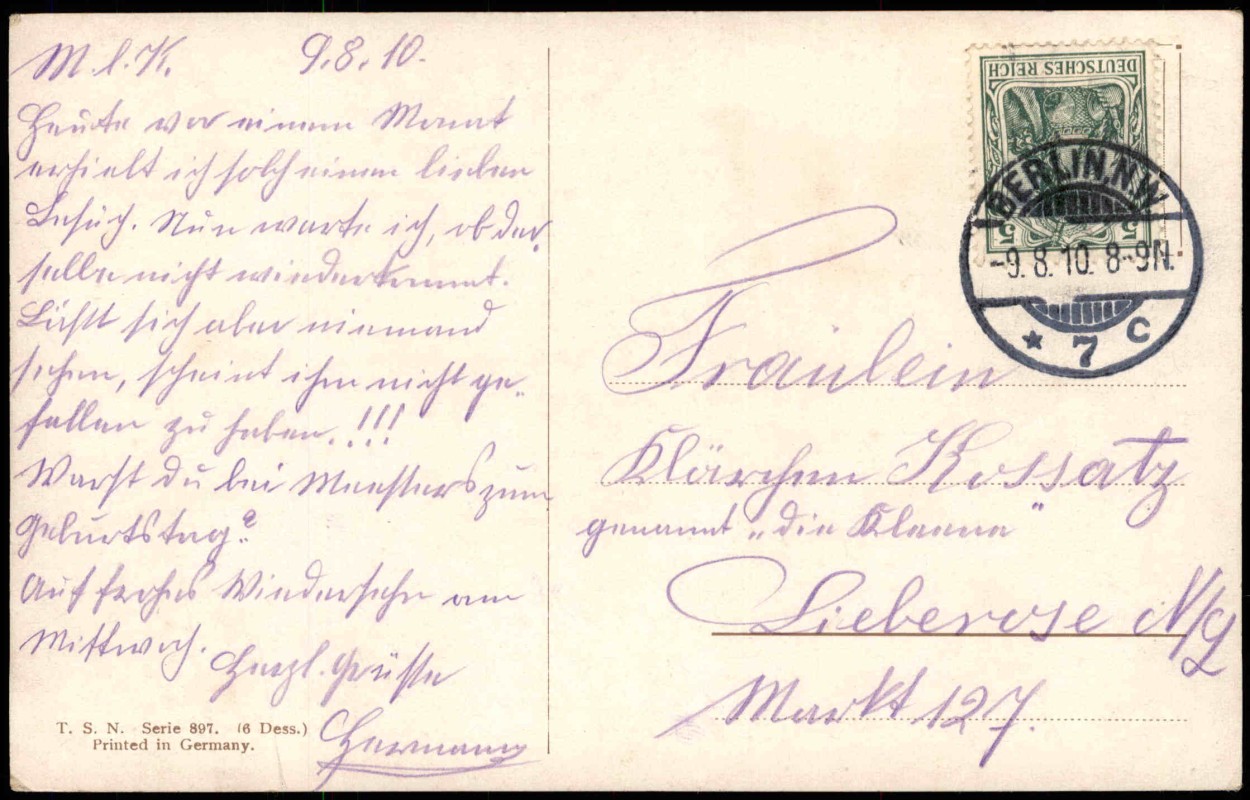 M. l. K. 9.8.10.
Heute vor einem Monat
erhielt ich solch einen lieben
Besuch. Nun warte ich, ob der,
selbe nicht wiederkommt.
Läßt sich aber niemand
sehen, scheint ihm nicht ge-
fallen zu haben.!!!
Warst du bei Meesters zum
Geburtstag?
Auf frohes Wiedersehn am
Mittwoch.
Herzl. Grüsse
Hermann
T. S. N. Serie 897. (6 Dess.)
Printed in Germany.
DEUTSCHES REICH
5 5
BERLIN.N.W.
-9.8.10. 8-9N.
* 7 c
Fräulein
Klärchen Kossatz
genannt „die Kleene"
Lieberose N/L
Markt 127.